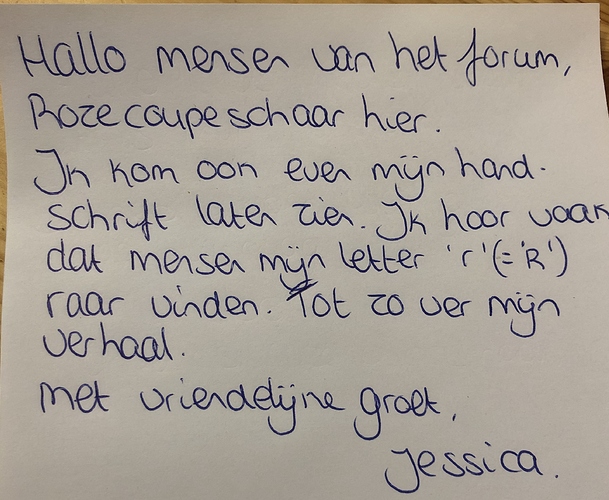 Hallo mensen van het forum,
Rozecoupeschaar hier.
Ik kom ook even mijn hand-
schrift laten zien. Ik hoor vaak
dat mensen mijn letter 'r' (= 'R')
raar vinden. Tot zo ver mijn
verhaal.
Met vriendelijke groet,
Jessica.